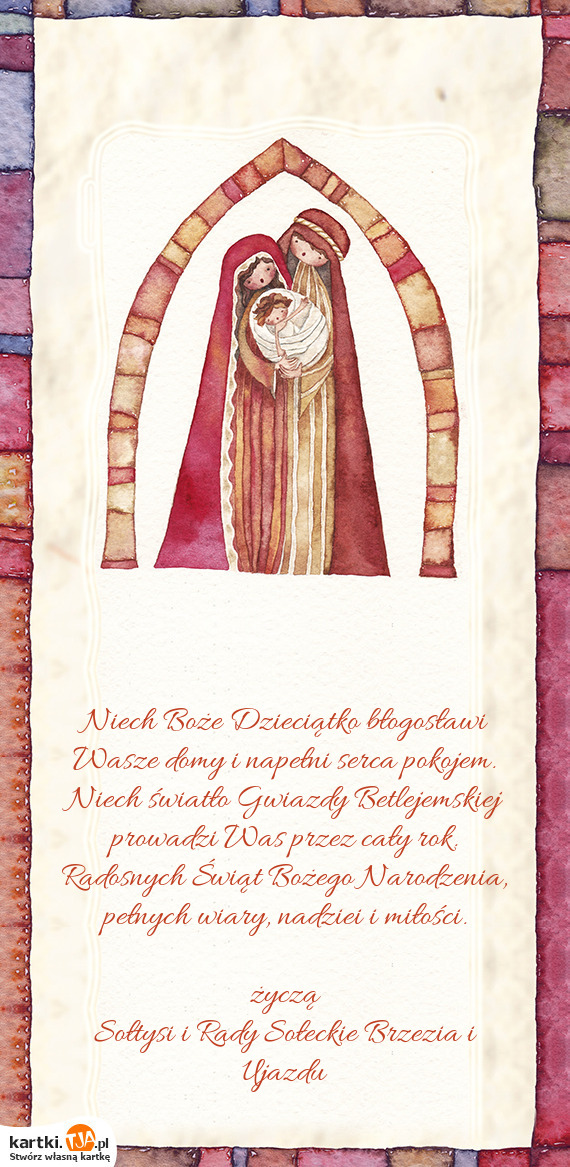 Niech Boże Dzieciątko błogosławi
Wasze domy i napełni serca pokojem.
Niech światło Gwiazdy Betlejemskiej
prowadzi Was przez cały rok.
Radosnych Świąt Bożego Narodzenia,
pełnych wiary, nadziei i miłości.
życzą
Sołtysi i Rady Sołeckie Brzezia i
Ujazdu
kartki.TJA.pl
Stwórz własną kartkę